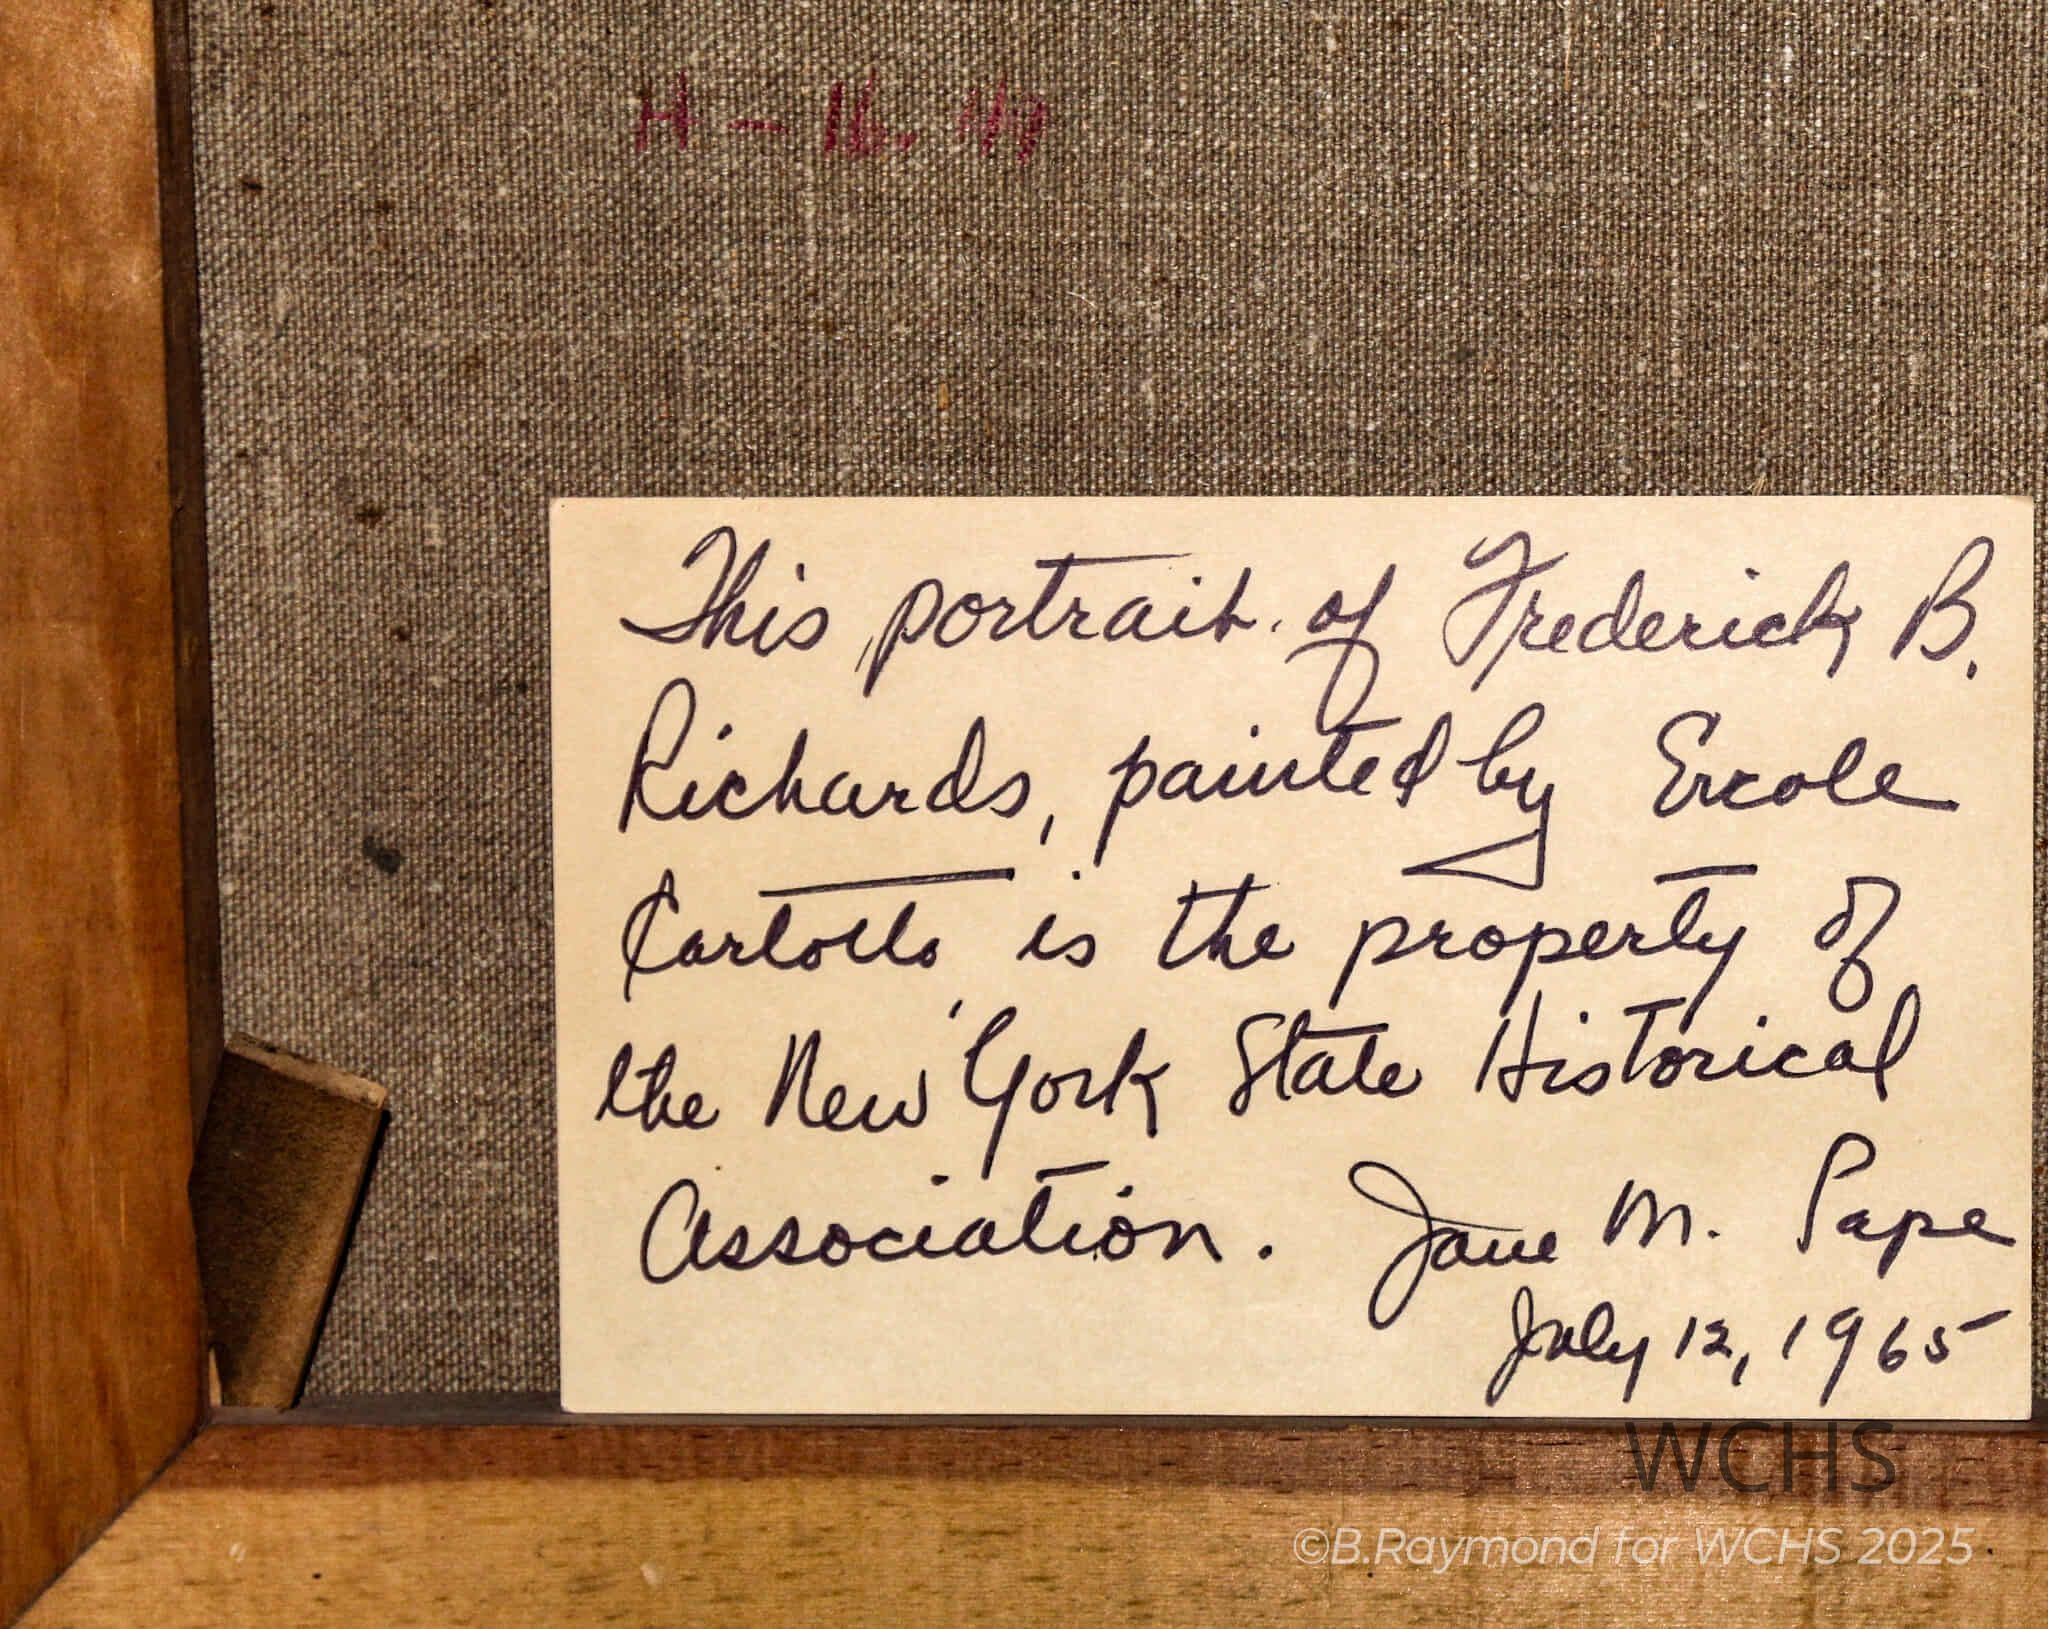 H - 16.
This portrait of Frederick B.
Richards, painted by Ercole
Cartotto is the property of
the New York State Historical
Association. Jane M. Pape
July 12, 1965
WCHS
©B.Raymond for WCHS 2025